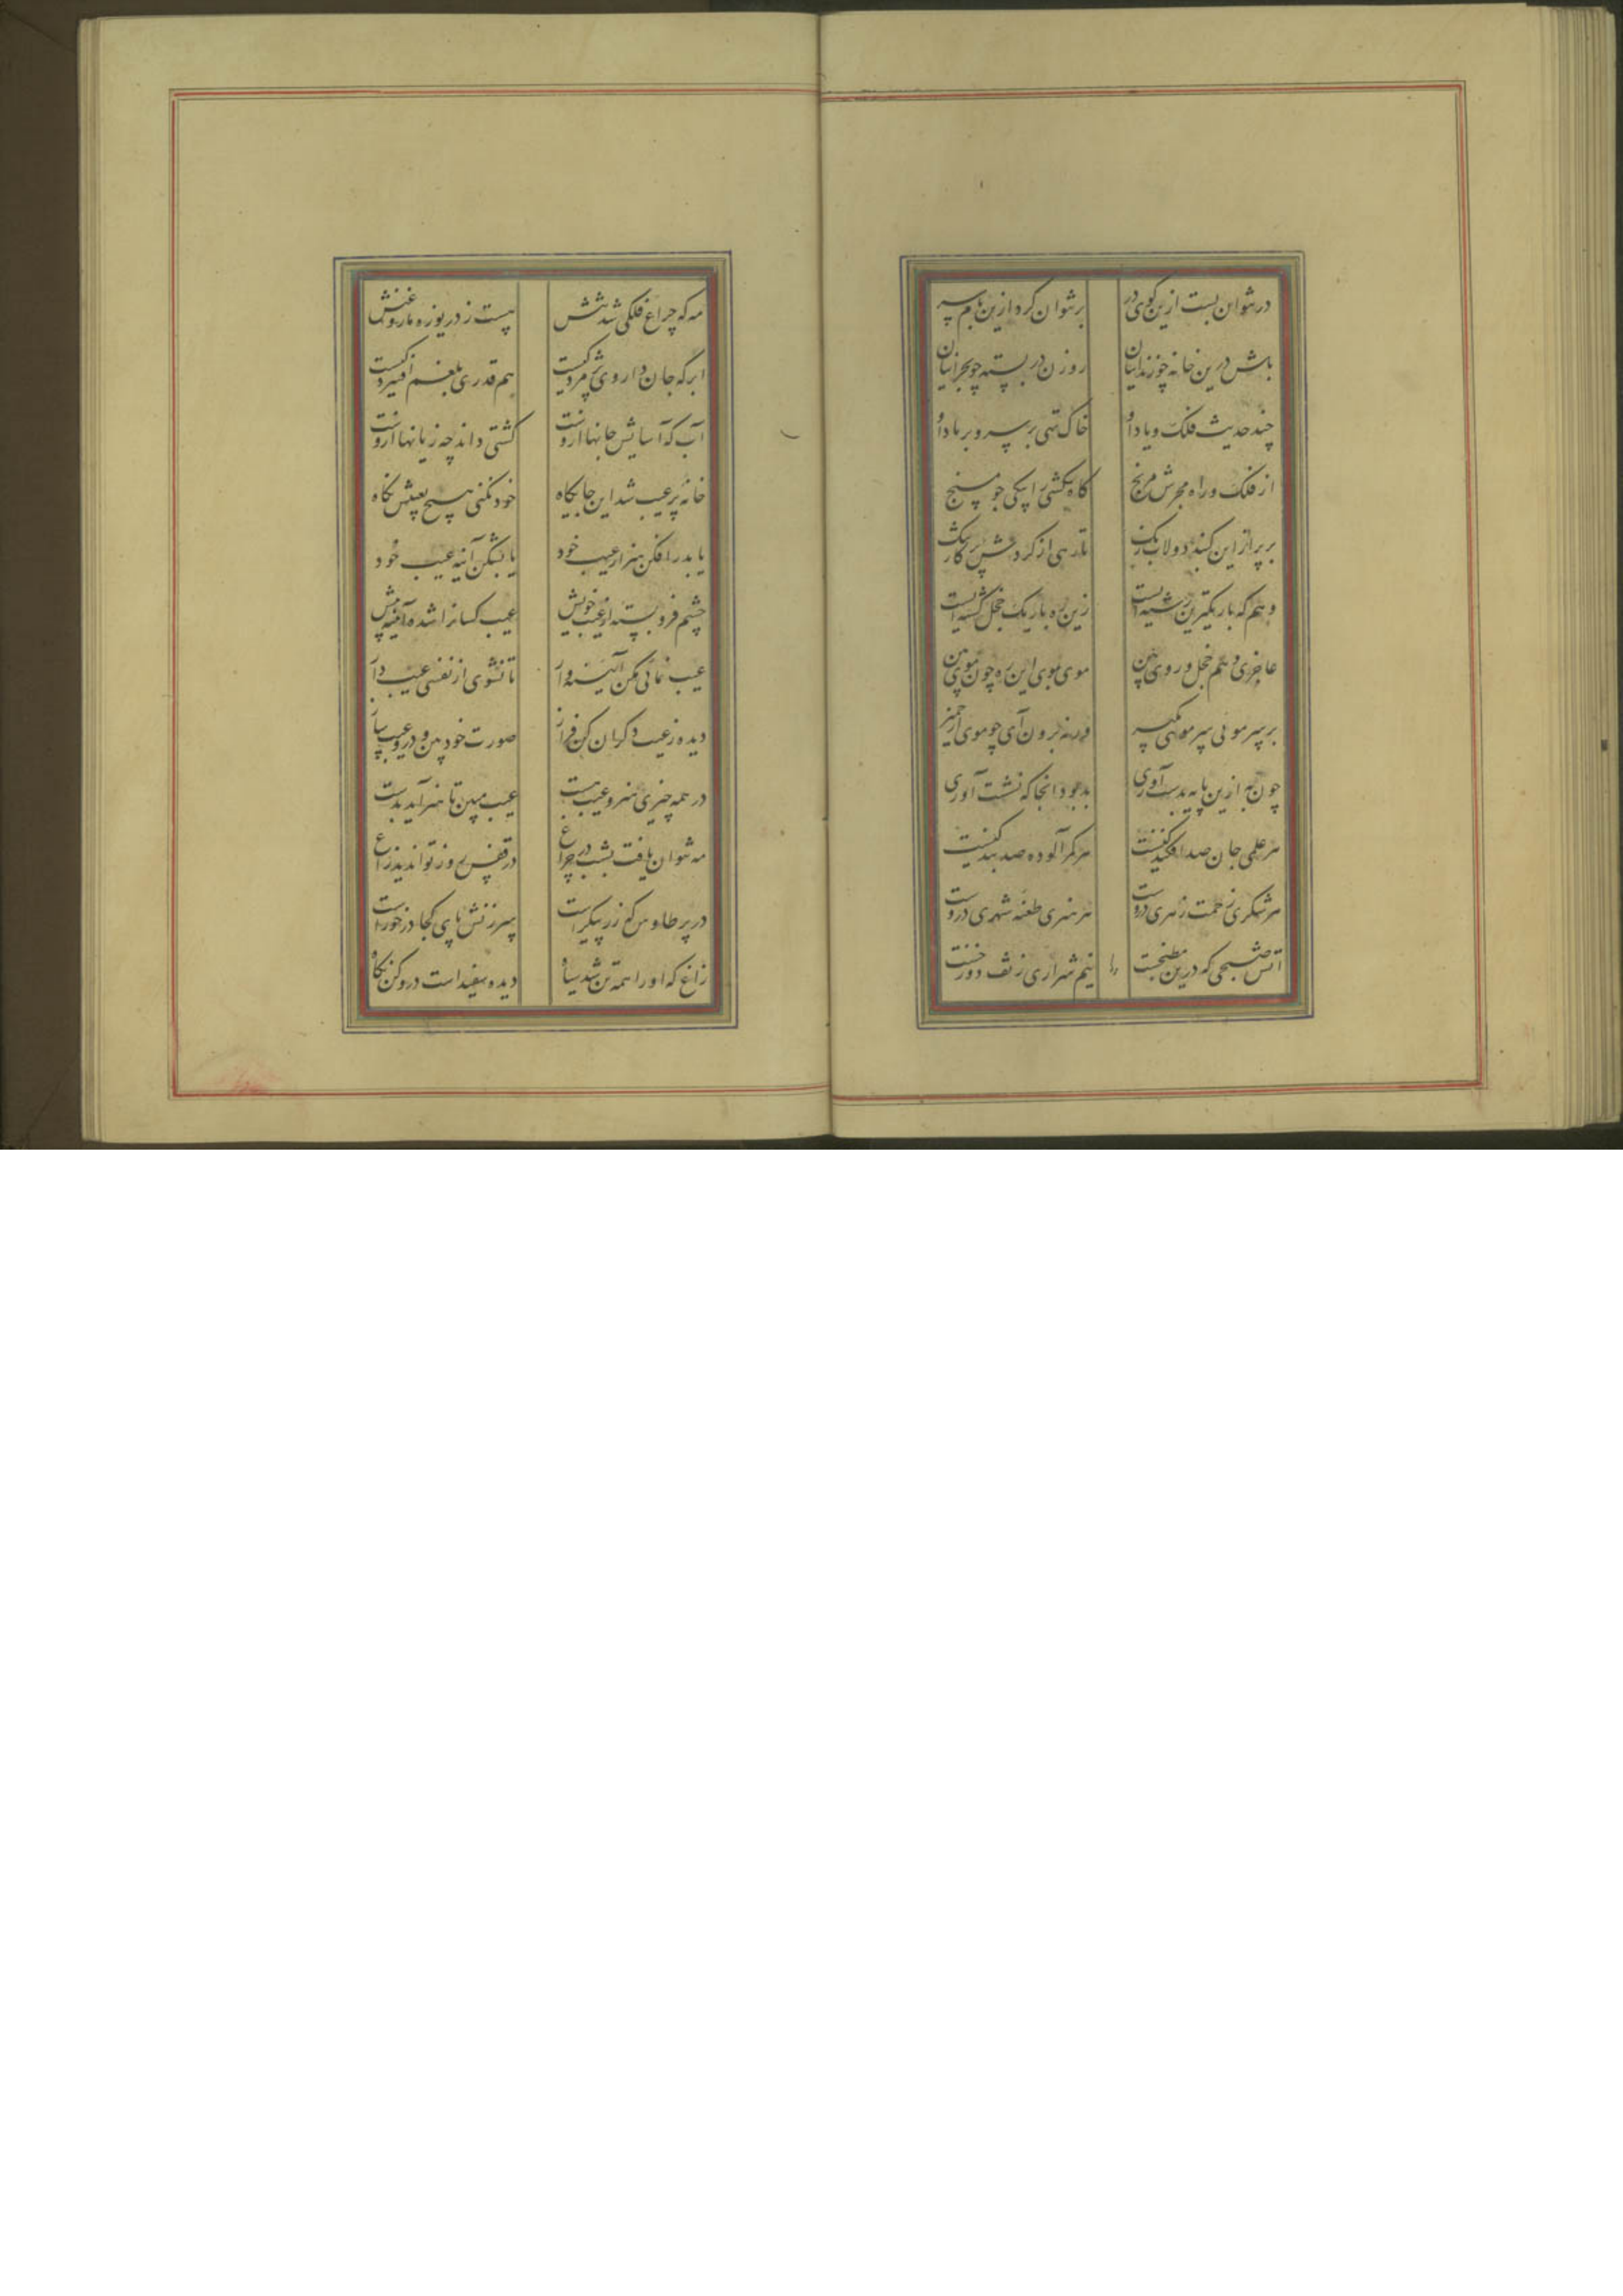 در نتوان بست ازین کوی در
بر نتوان کرد ازین بام سر
باش درین خانه چو زندانیان
روزن در بسته چو بحرانیان
چند حدیث فلک و یاد او
خاک تهی بر سر و بر باد او
از فلک و راه مجرش مرنج
کاه کشی را بیکی جو مسنج
بر پر از این کنبد دولاب رنک
تا رهی از کردش پرکار تنک
وهم که باریکترین رشته ایست
زین ره باریک خجل کشته ایست
عاجزی وهم خجل روی بین
موی بموی این ره چون موی بین
بر سر مویی سر مویی مکیر
ورنه برون آی چو موی از خمیر
چون به ازین پایه بدست آوری
بد بود اینجا که نشست آوری
هر علمی جای صد افکندکیست
هر کمر آلوده صد بندکیست
هر شکری زحمت زهری دروست
هر هنری طعنه شهری دروست
آتش صبحی که درین مطبخست
نیم شراری ز تف دوزخست
را
مه که چراغ فلکی شد تنش
هست ز دریوزه خور روغنش
ابر که جان داروی پژمردکیست
هم قدری بلغم افسردکیست
آب که آسایش جانها دروست
کشتی داند چه زیانها دروست
خانه پر عیب شد این جایکاه
خود نکنی هیچ بعیبش نکاه
یا بدر افکن هنر از جیب خود
یا بشکن آینه عیب خود
چشم فرو بسته از عیب خویش
عیب کسانرا شده آینه پیش
عیب نمائی مکن آئینه وار
تا نشوی از نفسی عیب دار
دیده ز عیب دکران کن فراز
صورت خود بین و درو عیب ساز
در همه چیزی هنر و عیب هست
عیب مبین تا هنر آید بدست
می نتوان یافت بشب در چراغ
در قفس روز تواند دید زاغ
در پر طاوس که زر پیکرست
سرزنش پای کجا در خورست
زاغ که او را همه تن شد سیاه
دیده سفید است درو کن نکاه